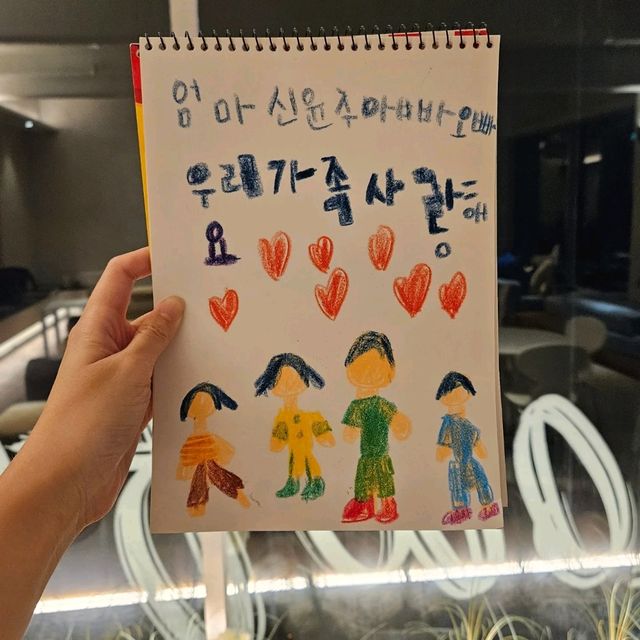 엄마 신윤주 아빠 오빠
우리 가족 사랑해
요